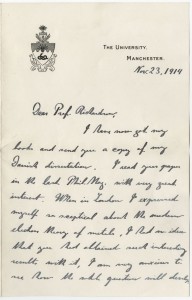 THE UNIVERSITY,
MANCHESTER.
Nov. 23, 1914
Dear Prof. Richardson,
I have now got my
books and send you a copy of my
Danish dissertation. I read your paper
in the last Phil. Mag. with very great
interest. When in London I expressed
myself so sceptical about the modern
electron theory of metals, I had no idea
that you had obtained such interesting
results with it, I am very anxious to
see how the whole question will